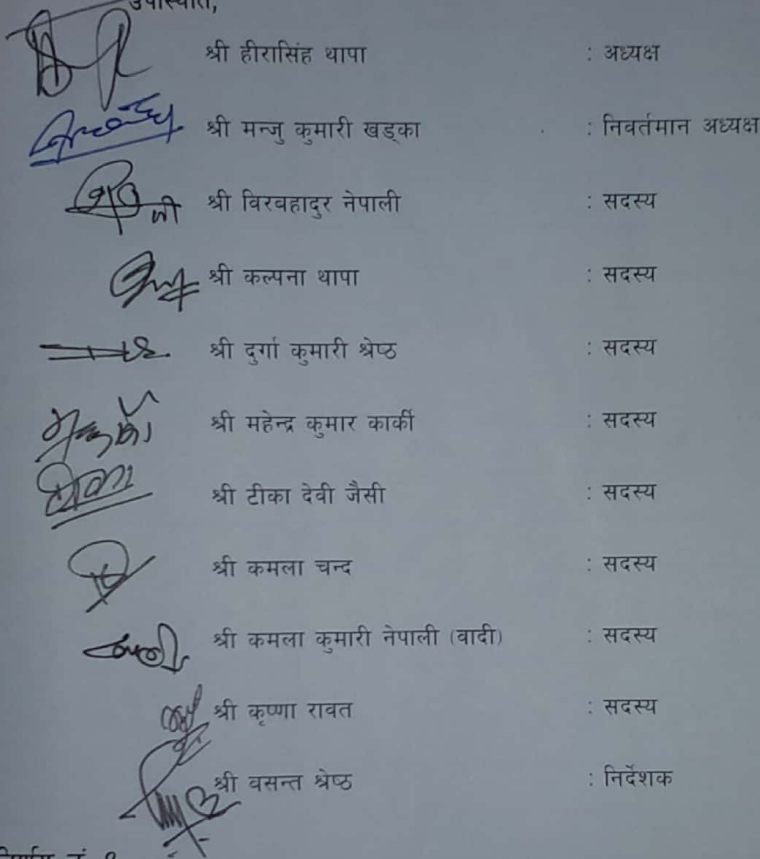 उपस्थिति,
श्री हीरासिंह थापा : अध्यक्ष
श्री मन्जु कुमारी खड्का : निवर्तमान अध्यक्ष
श्री विरवहादुर नेपाली : सदस्य
श्री कल्पना थापा : सदस्य
श्री दुर्गा कुमारी श्रेष्ठ : सदस्य
श्री महेन्द्र कुमार कार्की : सदस्य
श्री टीका देवी जैसी : सदस्य
श्री कमला चन्द : सदस्य
श्री कमला कुमारी नेपाली (वादी) : सदस्य
श्री कृष्णा रावत : सदस्य
श्री वसन्त श्रेष्ठ : निर्देशक